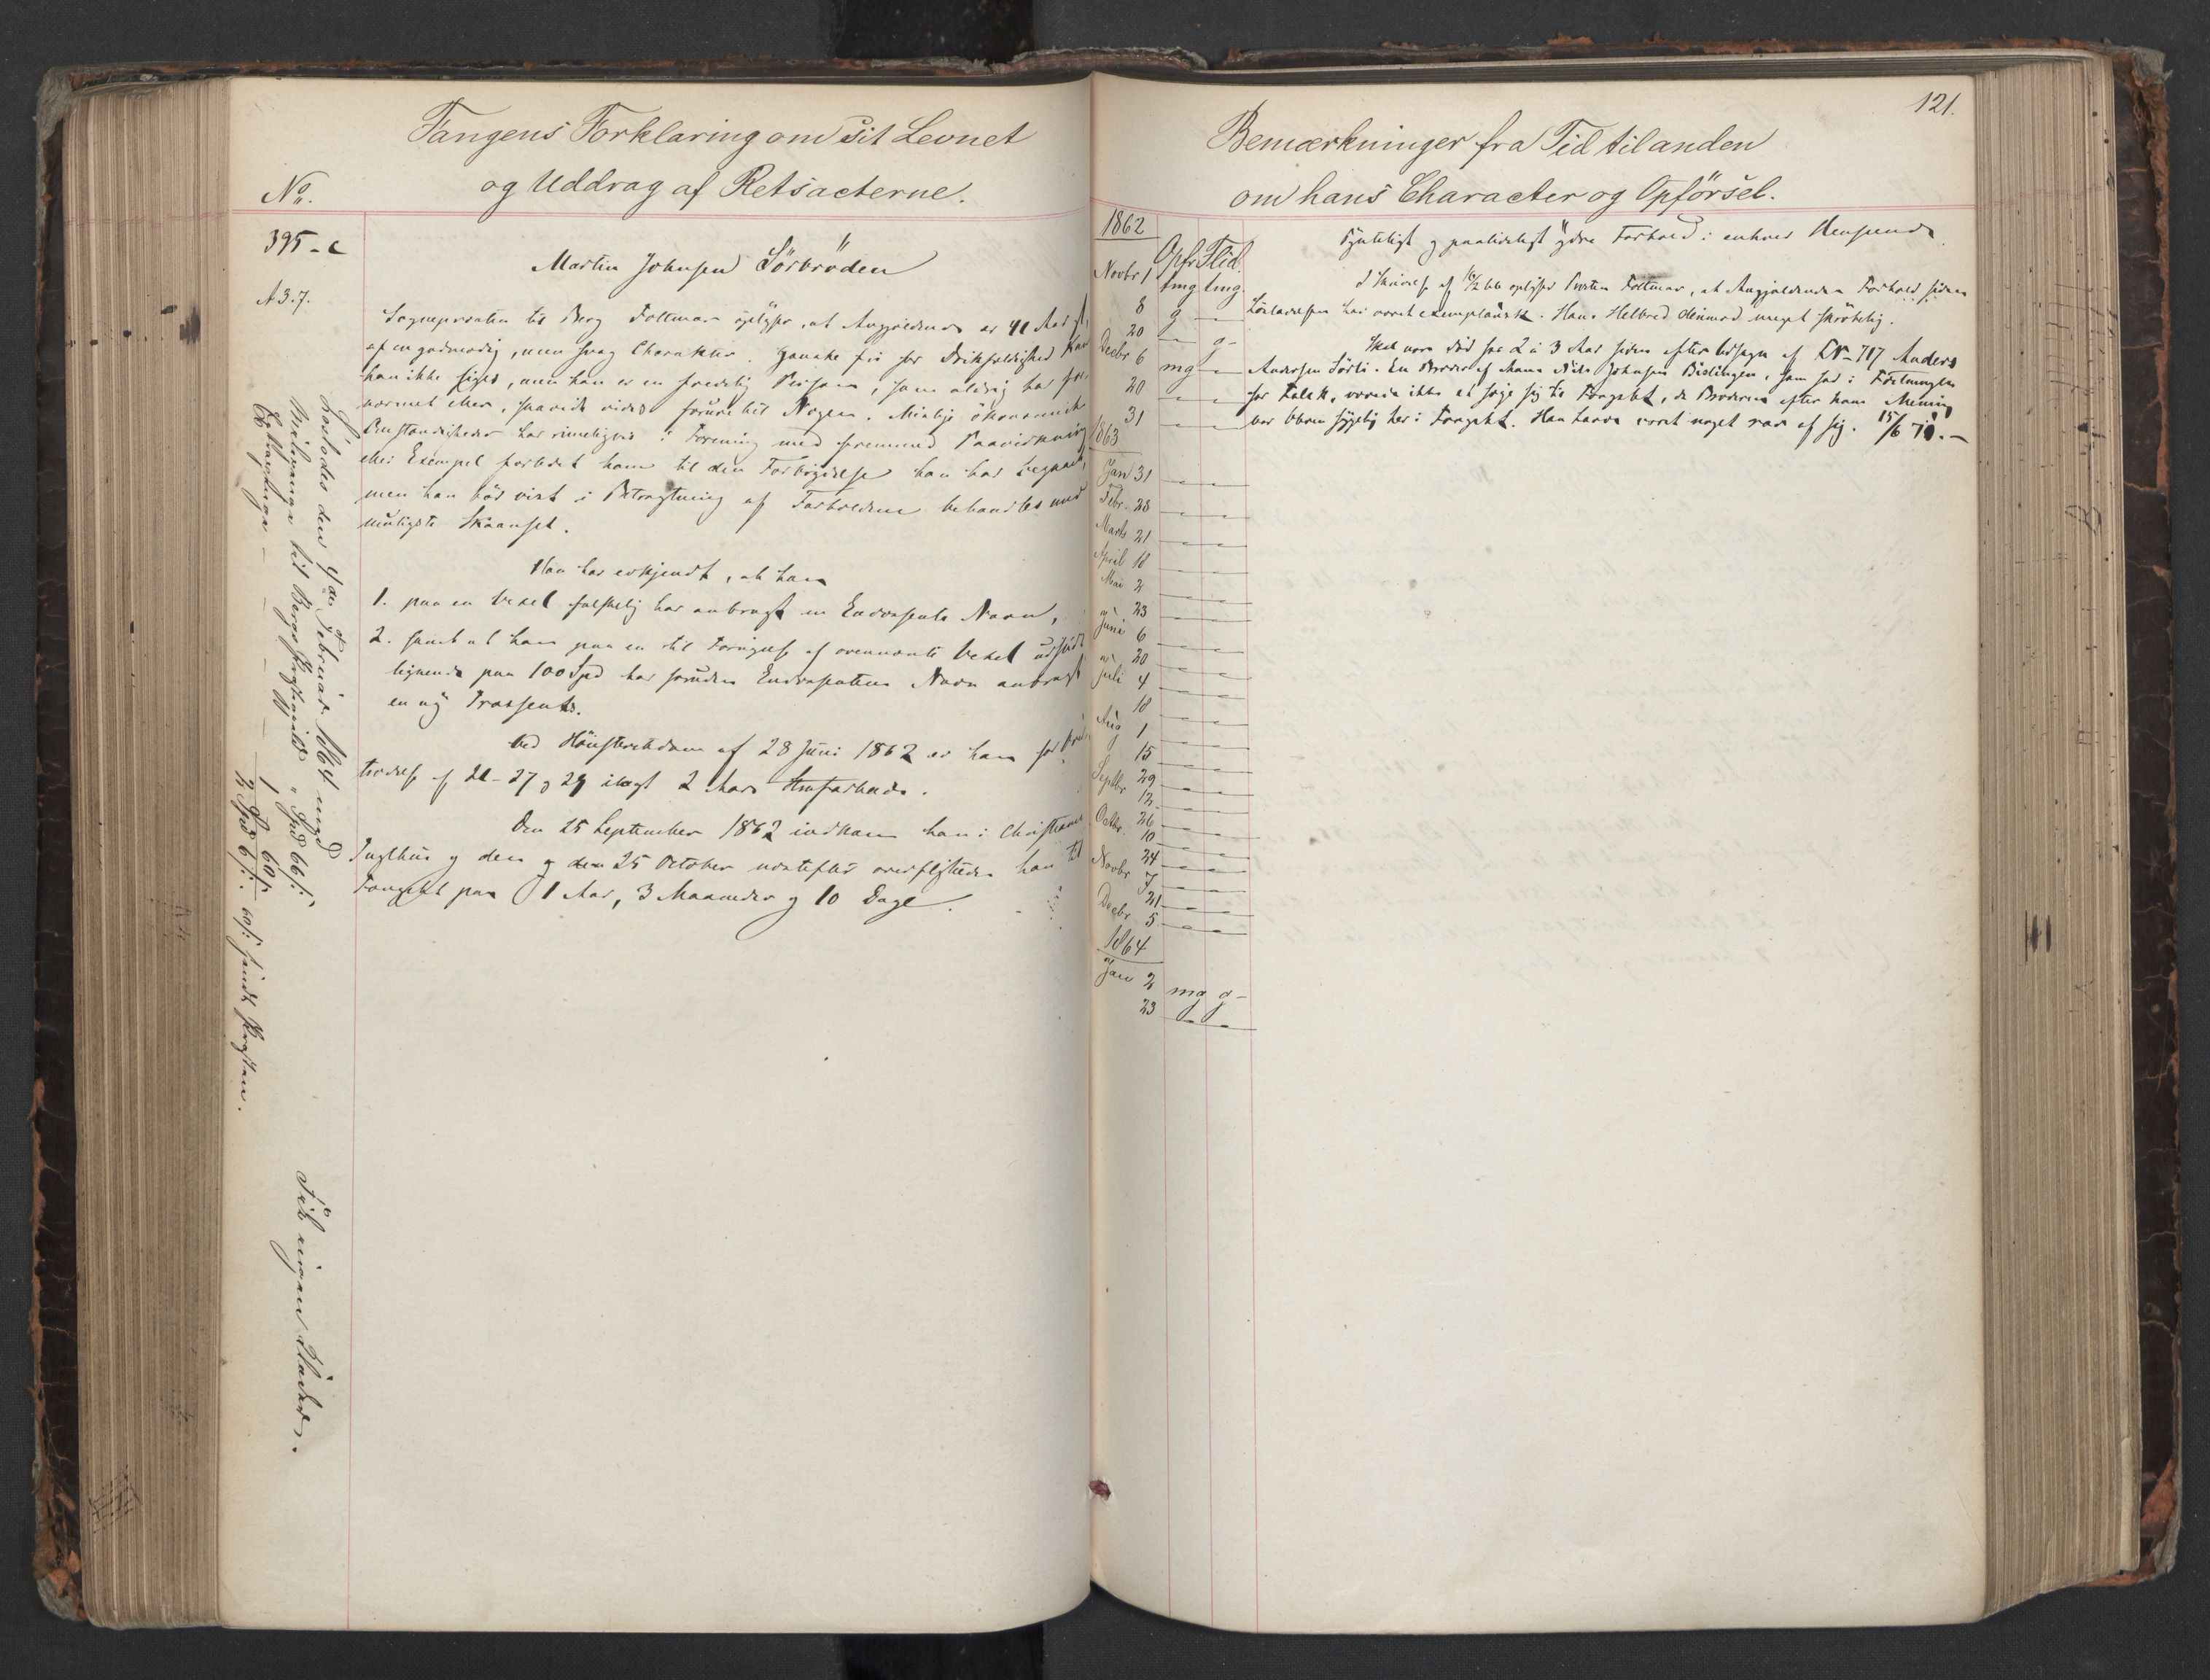 Fangens Forklaring om sit Levnet
og Uddrag af Retsacterne.
No.
395-c
A 3.7.
Martin Johnsen Sörbröden
Sognepresten til Berg Feltman oplyser, at Angjældende er 41 Aar gl,
af en godmodig, men svag Charakter. Ganske fri for Drikfældighed kan
han ikke siges, men han er en fredelig Person, som aldrig har for
nærmet eller, saavidt vides forurettet Nogen. Mislige ökonomiske
Omstændigheder har rimeligvis i Forening med fremmed Paavirkning
eller Exempel forledet ham til den Forbrydelse han har begaaet,
men han bör vist i Betragtning af Forholdene behandles med
muligste Skaansel.
Han har erkjendt, at han
1. paa en Vexel falskelig har anbragt en Endossents Navn,
2. samt at han paa en til Fornyelse af ovennævnte Vexel udstedt
lignende paa 100 Spd har foruden Endossentens Navn anbragt
en ny Trassents.
Ved Höiesteretsdom af 28 Juni 1862 er han for
tredelse af 21-27 og 29 ilagt 2 Aars Strafarbeide.
Den 25 September 1862 indkom han i Christiania
Tugthus og den 25 October næstefter overflyttedes han til
Fængslet paa 1 Aar, 3 Maaneder og 10 Dage.
Löslodes den 4de Februar 1864 med
Reisepenge til Bergs Præstegjeld " Spd 66 s:
Eftergivne — — — — 1 " 60 s:
2 Spd 6 s: 60 s: sendt Presten.
Fik ingen Klæder.
121.
Bemærkninger fra Tid til anden
om hans Character og Opförsel.
1862
Opfr Flid.
Novbr 1 tmg tmg
8 g —
20 — g-
Decbr 6 mg —
20 — —
31 — —
1863
Jan 31 — —
Febr. 28 — —
Marts 21 — —
April 18 — —
Mai 2 — —
" 23 — —
Juni 6 — —
" 20 — —
Juli 4 — —
18 — —
Aug 1 — —
15 — —
29 — —
Septbr 12 — —
26 — —
Octbr. 10 — —
24 — —
Novbr 7 — —
21 — —
Decbr 5 — —
1864
Jan 2 mg g-
23 — —
og paalideligt ydre Forhold i enhver Henseende
I Skrivelse af 16/2 66 oplyser Presten Feltman, at Angjældendes Forhold siden
Löslatelsen har været exemplarisk. Hans Helbred derimod meget skröbelig.
Skal være död for 2 à 3 Aar siden efter Udsagn af LN-717 Anders
Andersen Sörli. En Broder af Mand Nils Johnsen Bislingen, som sad i Fæstningen
for Falsk, vovede ikke at söge sig til Fængslet, da Broderen efter hans Mening
var bleven sygelig her i Fængslet. Han havde været noget rar af sig. 15/6 70.—